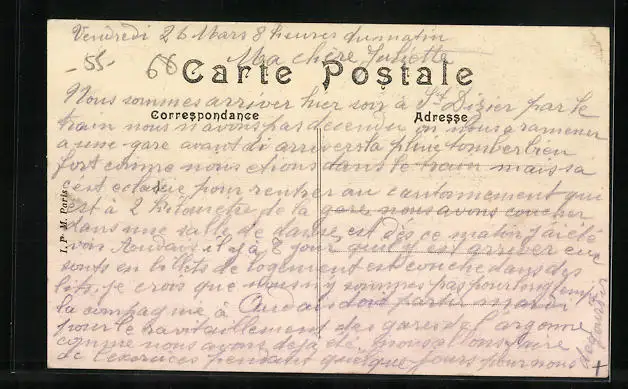 Vendredi 26 Mars 8 heures du matin
- 55 - 68 Ma chère Juliette
Carte Postale
Nous sommes arriver hier soir à St Dizier par le
Correspondance Adresse
train nous n'avons pas decendu on nous a ramener
a une gare avant di arriver sta pluie tomver bien
fort comme nous etions dans le train mais sa
est eclaicie pour rentrer au cantonnement qui
est à 2 kilometre de la gare nous avons coucher
dans une salle de danse est dès ce matin j'ai été
voir Audans il y à 8 jour quil y est arriver eux
sont en billets de logement est couche dans des
lits, je crois que nous ny sommes pas pour longtemp
la compagnie à Audans doit partir mardi
pour le ravitaillement des gares de l'argonne
comme nous avons dejà été, nous allons faire
de l'exercices pendant quelque jours pour nous
degourdir +
I. P. M. Paris